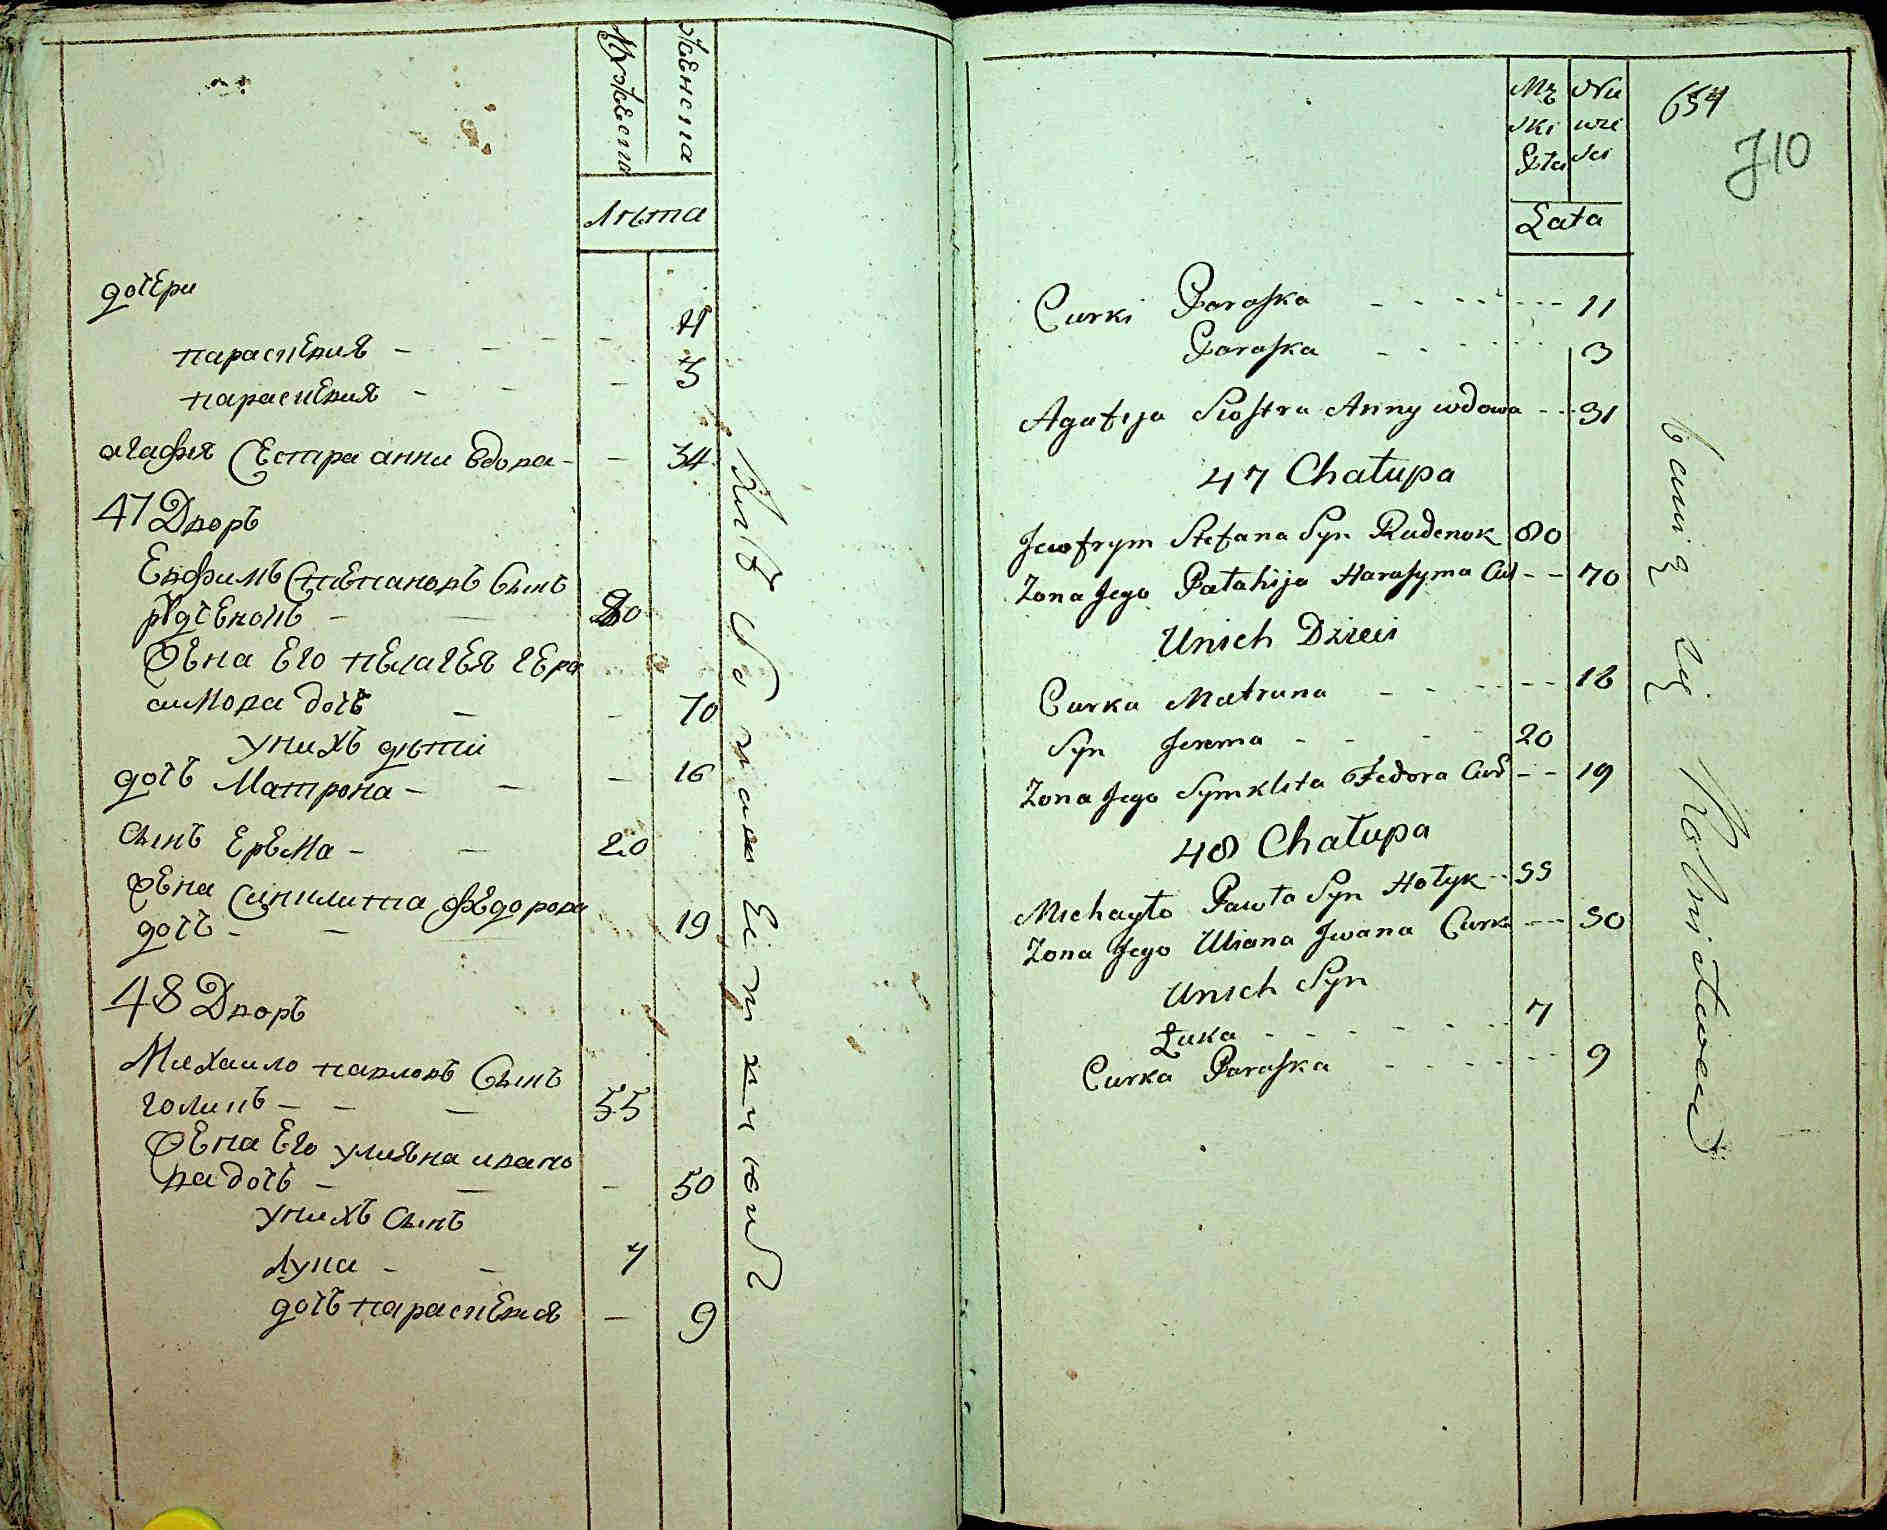 Мужеска
Женска
Лѣта
дочери
параскевия - - - - 11
параскевия - - - 3
агафия Сестра анни вдова - - 34
47 Дворъ
Евфимъ Степановъ Сынъ
рудченокъ - - 80
Жена Его пелагея гера
симова дочь - - 70
у нихъ дѣти
дочь Матрона - - - 16
сынъ Ерема - - 20
Жена Синклита федорова
дочь - - 19
48 Дворъ
Михаило павловъ Сынъ
голикъ - - - 55
Жена Его улияна ивано
ва дочь - - - 50
у нихъ Сынъ
лука - - 7
дочь параскевия - 9
Męzki
Niewei
Płta
Lata
654
710
Curki Paraska - - - - - - - 11
Paraska - - - - - 3
Agafija Siostra Anny wdowa - - - 31
47 Chałupa
Jewfrym Stefana Syn Rudenok 80
Zona Jego Patahija Harasyma Cur - - 70
Unich Dzieci
Curka Matruna - - - - - - 16
Syn Jerema - - - - 20
Zona Jego Symklita Fedora Cur - - 19
48 Chałupa
Michayło Pawła Syn Hołyk - - 55
Zona Jego Uliana Jwana Curka - - - 50
Unich Syn
Łuka - - - - - - 7
Curka Paraska - - - - - - 9